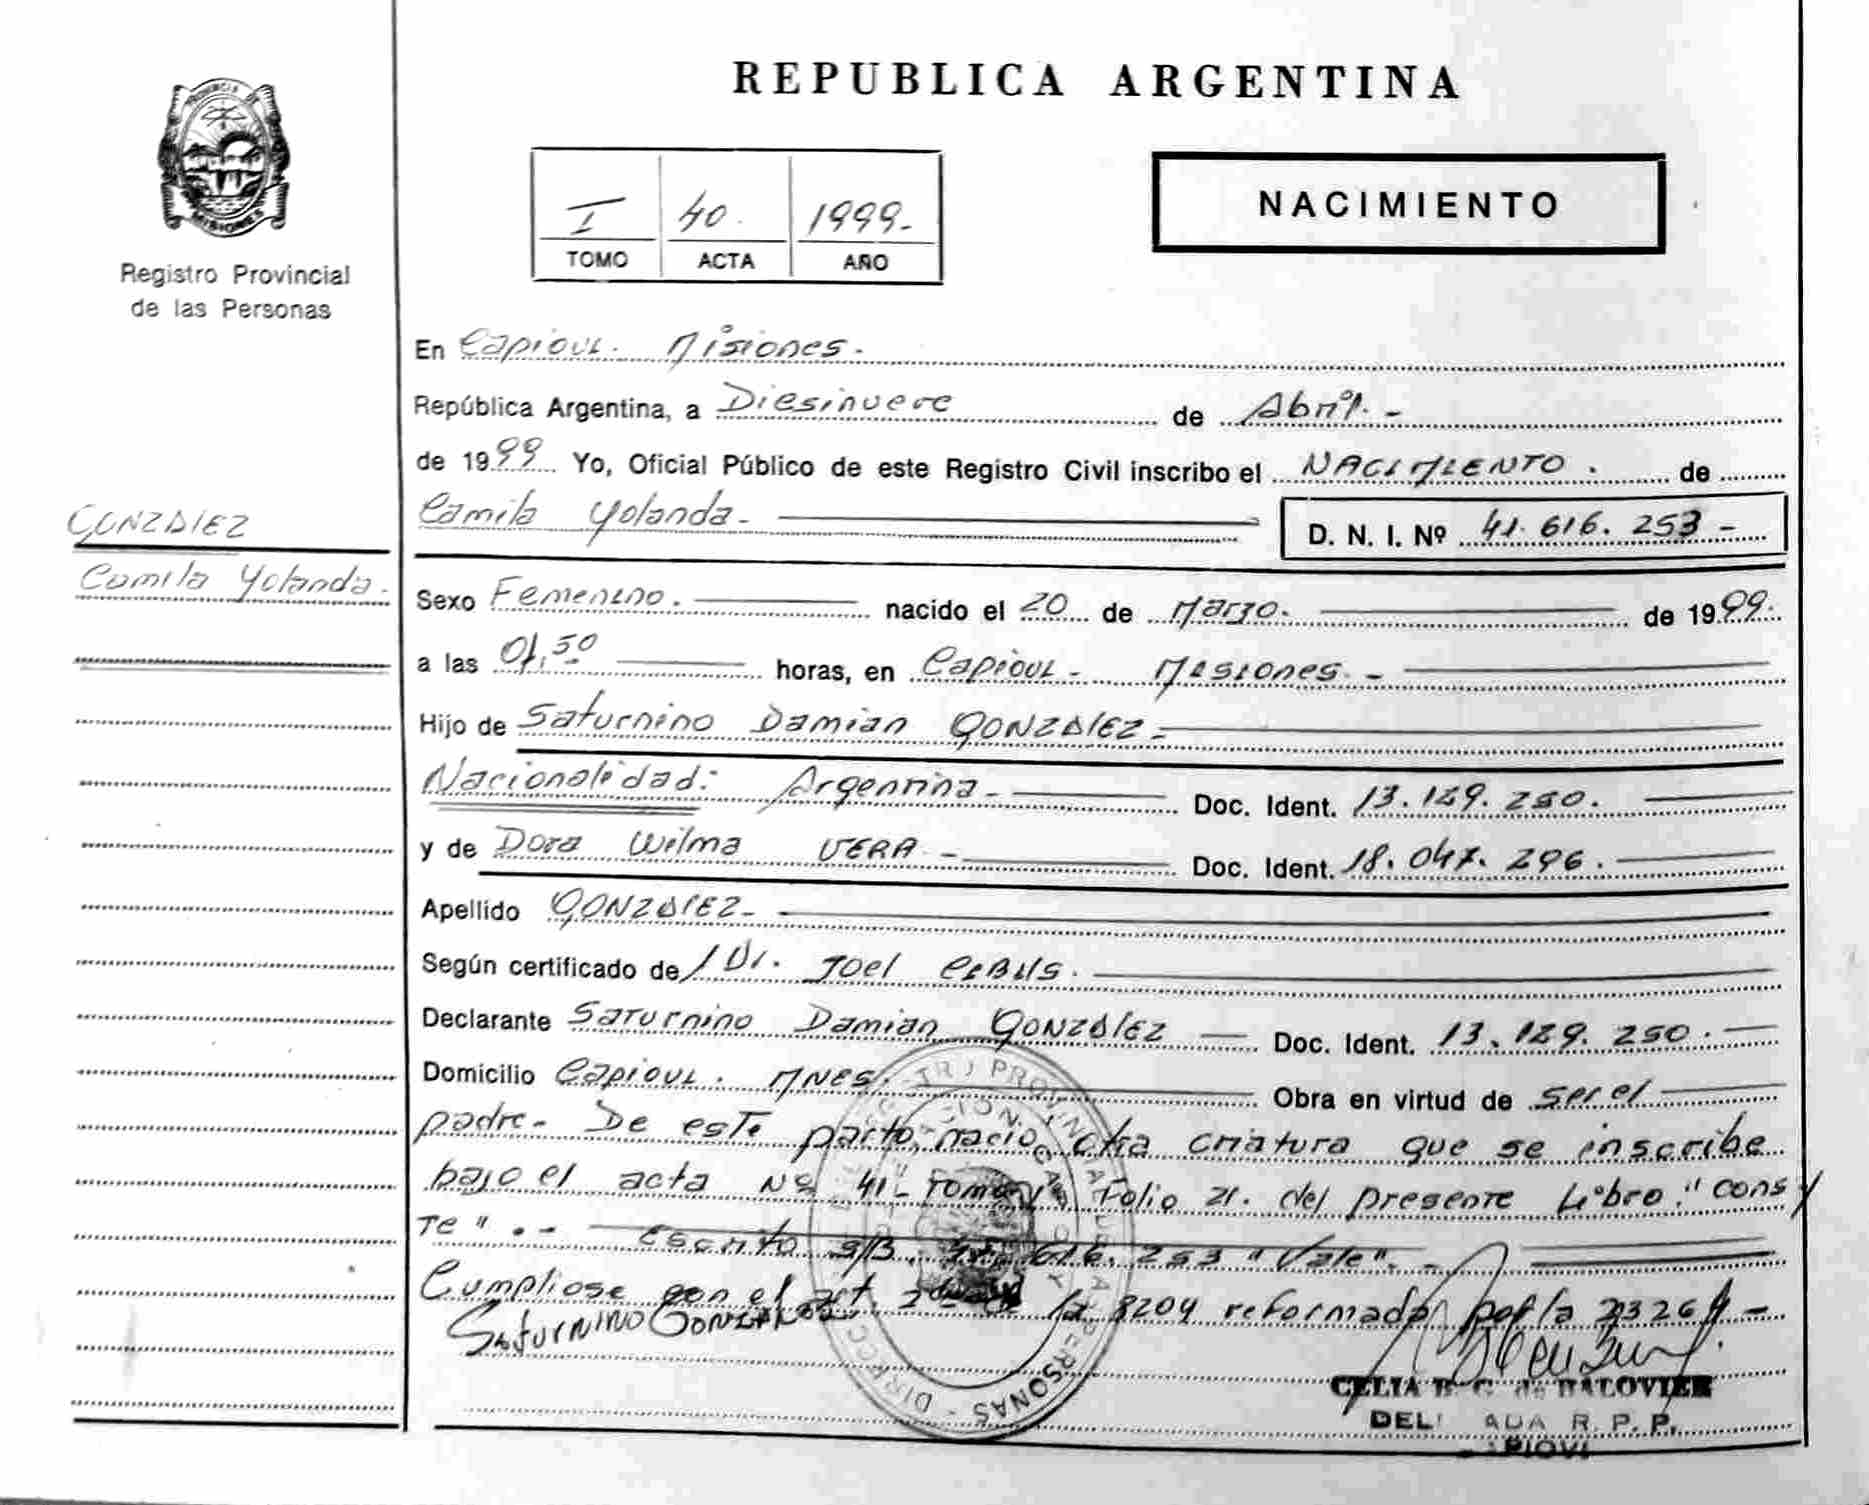 REPUBLICA ARGENTINA
PROVINCIA DE
MISIONES
Registro Provincial
de las Personas
I 40. 1999-
TOMO ACTA AÑO
NACIMIENTO
En Capiovi. Misiones.
República Argentina, a Diesinueve de Abril.-
de 1999 Yo, Oficial Público de este Registro Civil inscribo el NACIMIENTO. de
Camila Yolanda- D. N. I. Nº 41.616.253-
GONZALEZ
Camila Yolanda-
Sexo Femenino. nacido el 20 de Marzo. de 1999.
a las 01,50 horas, en Capiovi- Misiones.-
Hijo de Saturnino Damian GONZALEZ-
Nacionalidad: Argentina- Doc. Ident. 13.129.250.
y de Dora Wilma VERA- Doc. Ident. 18.047.296.
Apellido GONZALEZ-
Según certificado de Dr. Joel
Declarante Saturnino Damian GONZALEZ Doc. Ident. 13.129.250.
Domicilio Capiovi. MNES. Obra en virtud de ser el
padre- De este parto nacio otra criatura que se inscribe
bajo el acta Nº 41- Tomo Folio 21. del presente Libro." Cons
te".- Escrito S/B. 616.253 "Vale".-
Cumpliose con el art. la 8204 reformada por la 23264-
Saturnino Gonzalez
CELIA B. C. de DALOVIER
DEL ADA R. P. P.
PIOVI